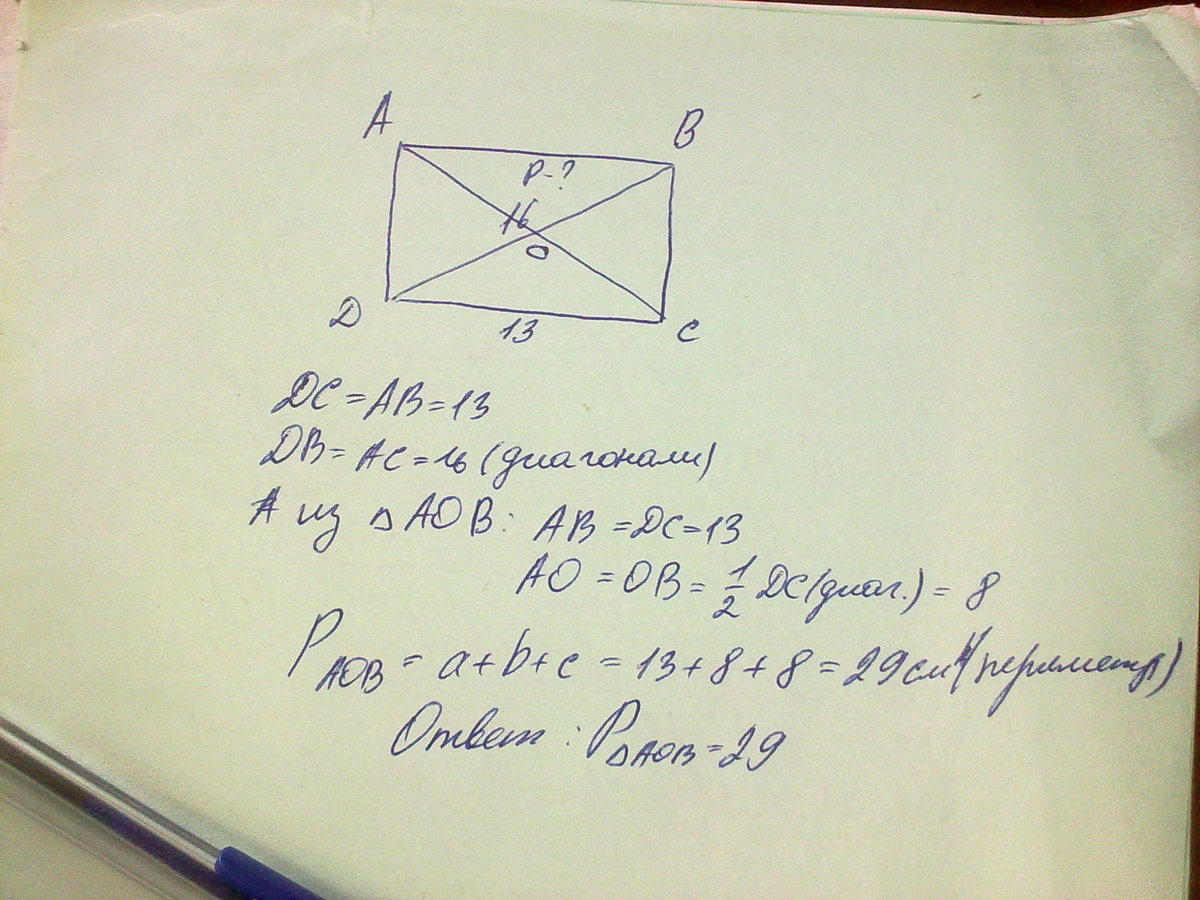 A
B
P-?
16
O
D
13
C
DC = AB = 13
DB = AC = 16 (диагонали)
из △AOB: AB = DC = 13
AO = OB = 1/2 DC (диаг.) = 8
P AOB = a + b + c = 13 + 8 + 8 = 29 см (периметр)
Ответ: P△AOB = 29